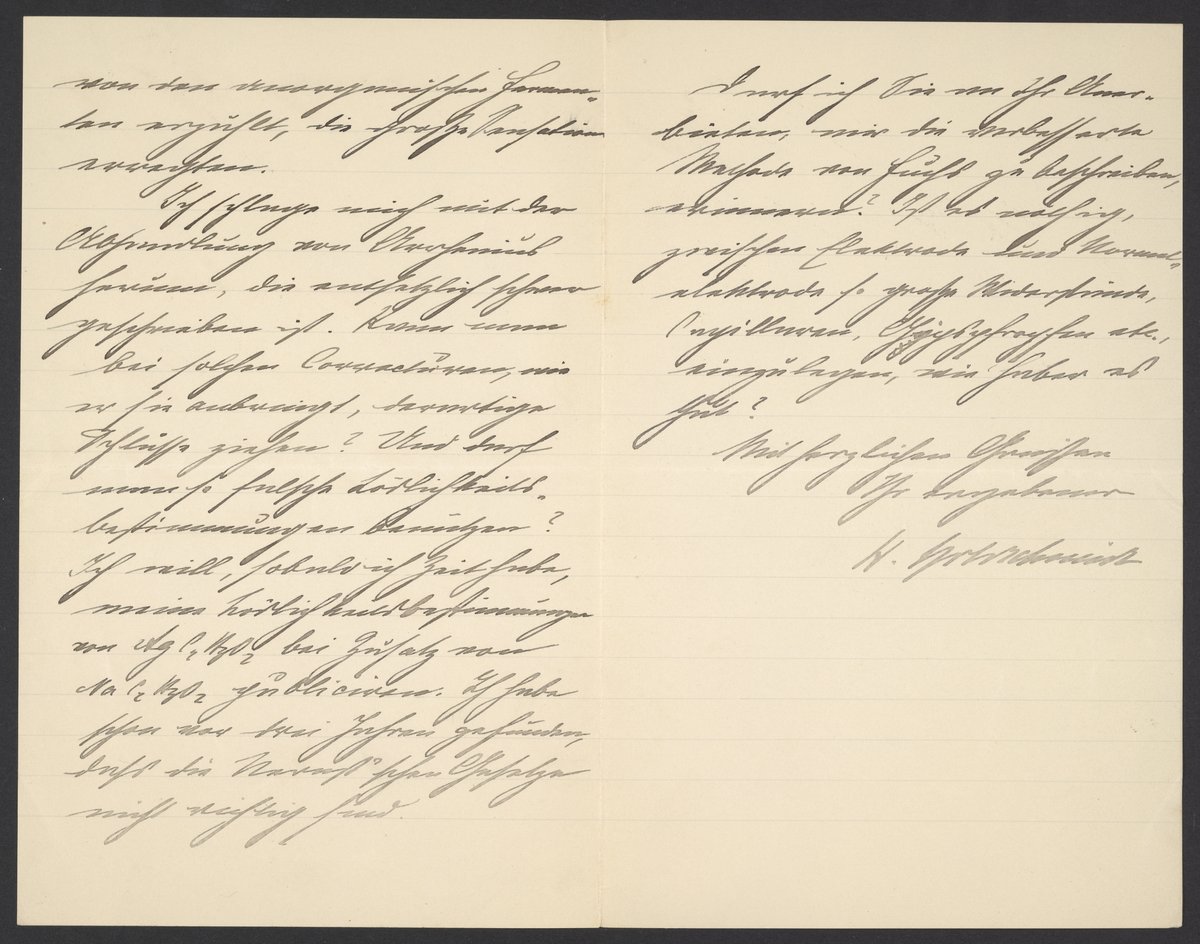 von den anorganischen Fermen-
ten erzählt, die große Sensation
erregten.
Ich schlage mich mit der
Abhandlung von Arrhenius
herum, die entsetzlich schwer
geschrieben ist. Kann man
bei solchen Correcturen, wie
er sie anbringt, derartige
Schlüsse ziehen? Und darf
man so falsche Löslichkeits-
bestimmungen benutzen?
Ich will, sobald ich Zeit habe,
meine Löslichkeitsbestimmungen
von Ag C2H3O2 bei Zusatz von
Na C2H3O2 publiciren. Ich habe
schon vor drei Jahren gefunden,
daß die Nernst'schen Gesetze
nicht richtig sind.
Darf ich Sie an Ihr Aner-
bieten, mir die verbesserte
Methode von Fuchs zu beschreiben,
erinnern? Ist es nöthig,
zwischen Elektrode und Normal-
elektrode so große Widerstände,
Capillaren, Gypspfropfen etc.,
einzulegen, wie Haber es
thut?
Mit herzlichen Grüssen
Ihr ergebener
H. Goldschmidt